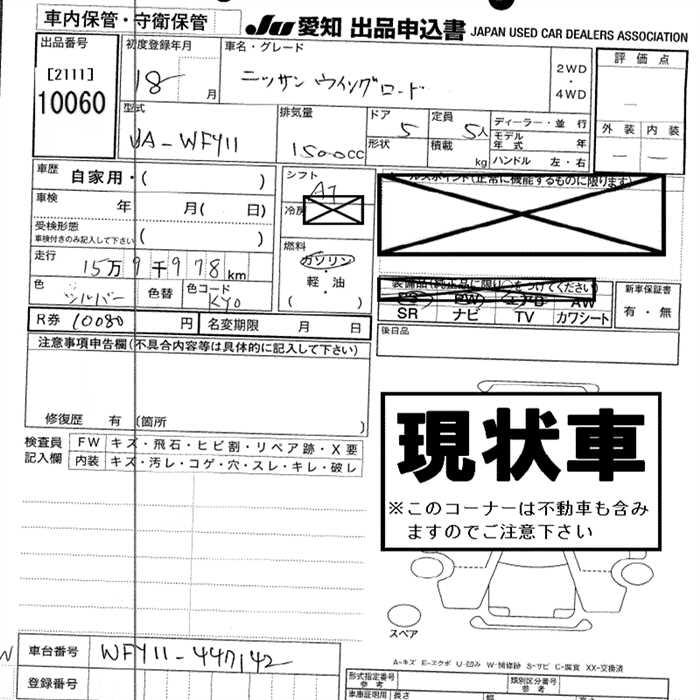 車内保管・守衛保管
JU 愛知 出品申込書 JAPAN USED CAR DEALERS ASSOCIATION
出品番号
[2111]
10060
初度登録年月
18 月
車名・グレード
ニッサン ウイングロード
2WD
・
4WD
評価点
外装 内装
型式
UA-WFY11
排気量
1500cc
ドア
5
形状
定員
5人
積載 kg
ディーラー・並行
モデル年式 年
ハンドル 左・右
車歴
自家用・( )
シフト
AT
車検
年 月( 日)
冷房
受検形態
車検付きのみ記入して下さい ( )
走行
15万9千978km
燃料
ガソリン・軽油
( )
色
シルバー
色替
色コード
KY0
R券 10080 円
名変期限 月 日
(正常に機能するものに限ります)
装備品(純正品に限り○をつけてください)
PS PW エアB AW
SR ナビ TV カワシート
新車保証書
有・無
後日品
注意事項申告欄(不具合内容等は具体的に記入して下さい)
修復歴 有(箇所 )
検査員記入欄
FW キズ・飛石・ヒビ割・リペア跡・X要
内装 キズ・汚レ・コゲ・穴・スレ・キレ・破レ
現状車
※このコーナーは不動車も含み
ますのでご注意下さい
スペア
A-キズ E-エクボ U-凹み W-補修跡 S-サビ C-腐食 XX-交換済
車台番号 WFY11-447142
登録番号
形式指定番号
参考
類別区分番号
参考
車庫証明用
参考
長さ
幅
高さ